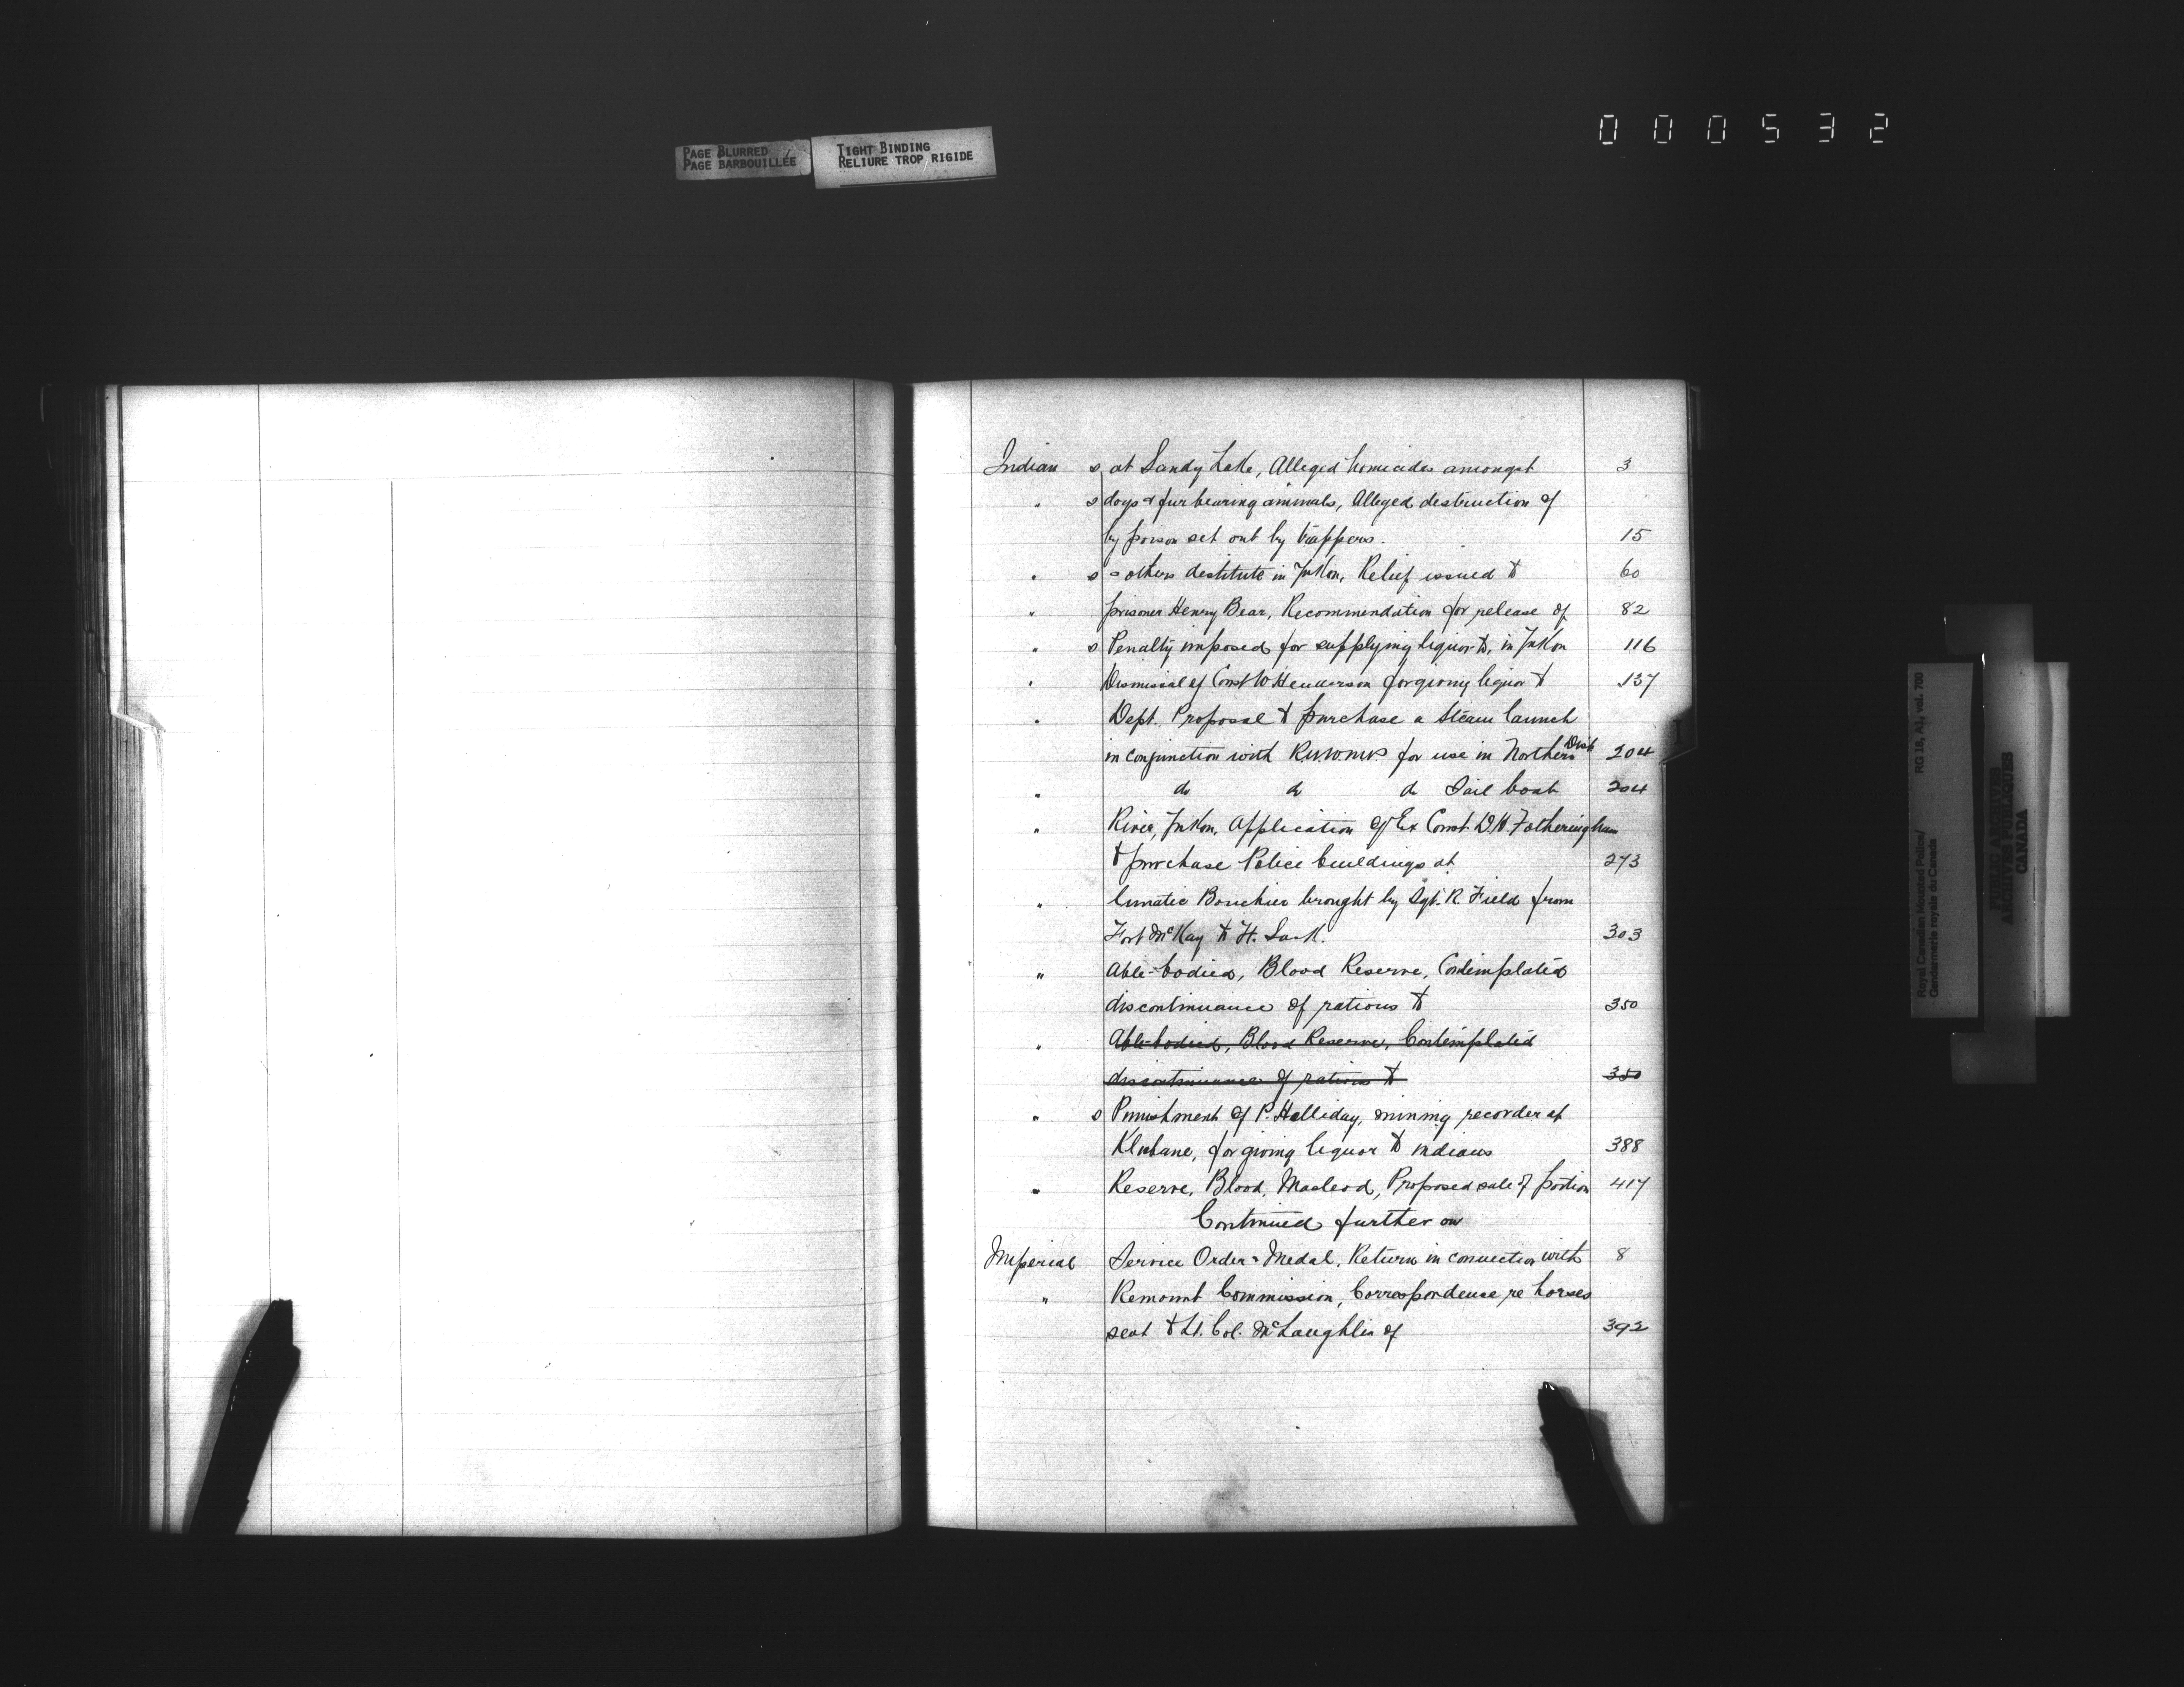 PAGE BLURRED
PAGE BARBOUILLÉE
TIGHT BINDING
RELIURE TROP RIGIDE
000532
Indian s at Sandy Lake, Alleged homicides amongst 3
" s dogs & fur bearing animals, Alleged destruction of
by poison set out by trappers. 15
" s & others destitute in Yukon, Relief issued to 60
" prisoner Henry Bear, Recommendation for release of 82
" s Penalty imposed for supplying liquor to, in Yukon 116
" Dismissal of Const W Henderson for giving liquor to 137
" Dept. Proposal to purchase a Steam launch
in conjunction with R.N.W.M.P. for use in Northern Dist 204
" do do do Sail boat 204
" River, Yukon, Application of Ex Const. D.H. Fotheringham
to purchase Police buildings at 273
" lunatic Bouchier brought by Sgt. R. Field from
Fort McKay to Ft. Sask. 303
" Able-bodied, Blood Reserve, Contemplated
discontinuance of rations to 350
" Able-bodied, Blood Reserve, Contemplated
discontinuance of rations to 350
" s Punishment of P. Halliday, mining recorder at
Kluhane, for giving liquor to indians 388
" Reserve, Blood, Macleod, Proposed sale of portion 417
Continued further on
Imperial Service Order & Medal, Return in connection with 8
" Remount Commission, Correspondence re horses
sent to Lt. Col. McLaughlin of 392
Royal Canadian Mounted Police/
Gendarmerie royale du Canada
RG 18, A1, vol. 700
PUBLIC ARCHIVES
ARCHIVES PUBLIQUES
CANADA
I